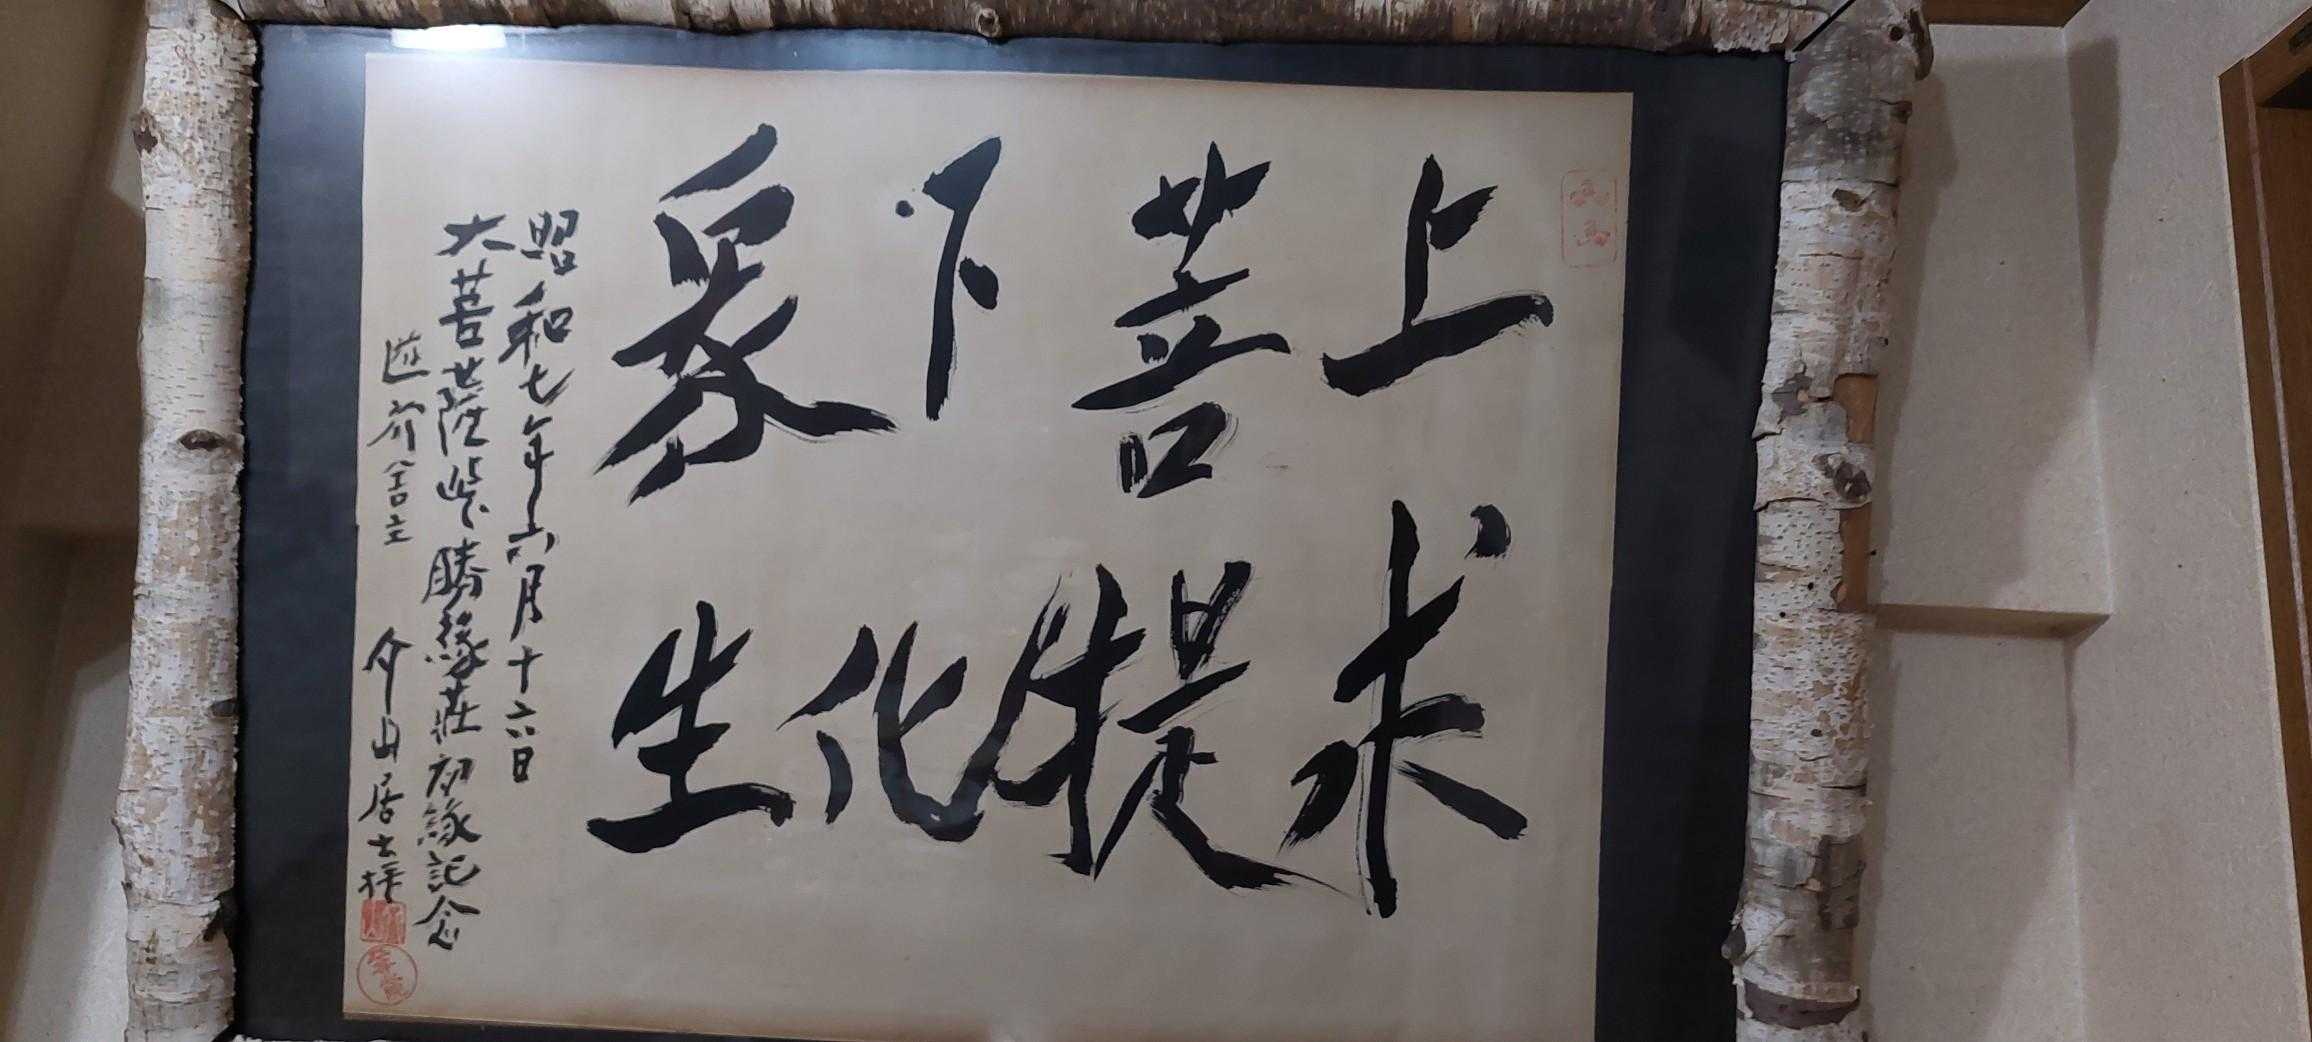 上求
菩提
下化
衆生
昭和七年六月十六日
大菩薩峠勝縁荘初縁記念
介山居士